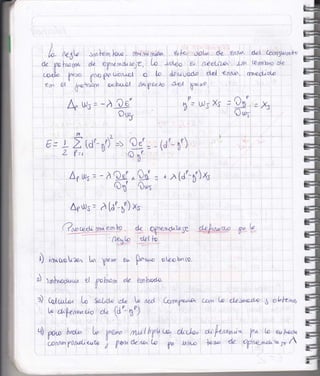 La regla intenta minimizar este valor de error del conjunto
de patrones de aprendizaje, la idea es realizar un cambio de
cada peso proporcional a la derivada del error, medida
en el patrón actual respecto del peso.
Δp wj = -λ ∂e^p / ∂wj   y^p = wj xj = ∂y^p / ∂wj = xj
E = 1/2 Σ (d^p - y^p)² => ∂e^p / ∂y^p = - (d^p - y^p)
Δp wj = - λ ∂e^p / ∂y^p · ∂y^p / ∂wj = + λ (d^p - y^p) xj
Δp wj = λ (d^p - y^p) xj
Procedimiento de aprendizaje definido por la
regla delta
1) inicializar los pesos en forma aleatoria.
2) introducir el patrón de entrada
3) Calcular la salida de la red comparar con la deseada y obtener
la diferencia de (d^p - y^p)
4) para todos los pesos multiplicar dicha diferencia por la entrada
correspondiente, y ponderarla por una tasa de aprendizaje λ